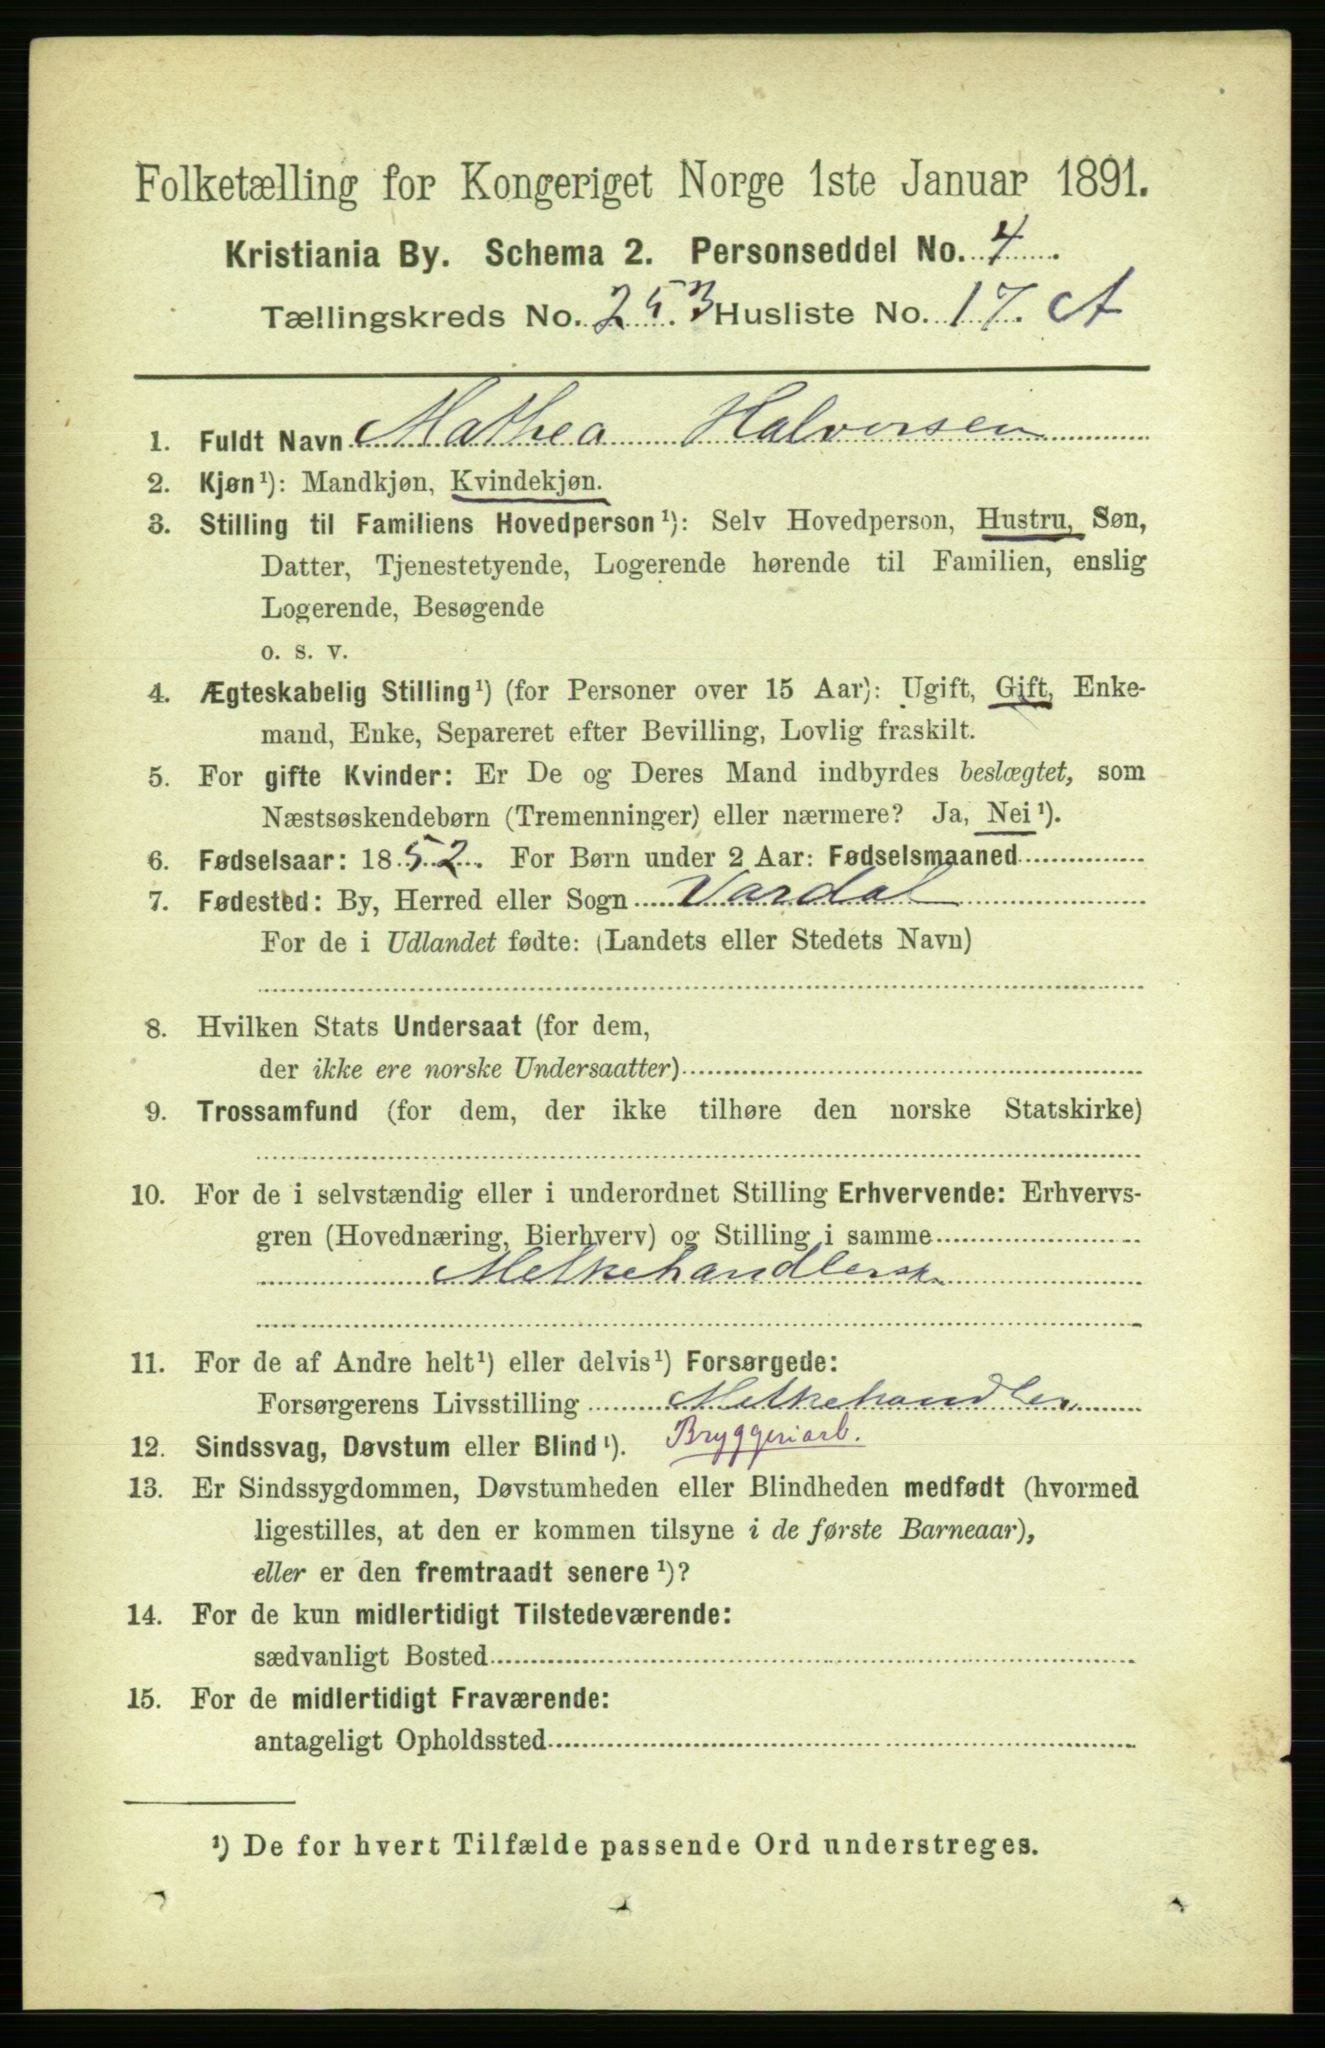 Folketælling for Kongeriget Norge 1ste Januar 1891.
Kristiania By. Schema 2. Personseddel No. 4
Tællingskreds No. 253 Husliste No. 17. A
1. Fuldt Navn Mathea Halvorsen
2. Kjøn¹): Mandkjøn, Kvindekjøn.
3. Stilling til Familiens Hovedperson¹): Selv Hovedperson, Hustru, Søn,
Datter, Tjenestetyende, Logerende hørende til Familien, enslig
Logerende, Besøgende
o. s. v.
4. Ægteskabelig Stilling¹) (for Personer over 15 Aar): Ugift, Gift, Enke-
mand, Enke, Separeret efter Bevilling, Lovlig fraskilt.
5. For gifte Kvinder: Er De og Deres Mand indbyrdes beslægtet, som
Næstsøskendebørn (Tremenninger) eller nærmere? Ja, Nei¹).
6. Fødselsaar: 1852. For Børn under 2 Aar: Fødselsmaaned
7. Fødested: By, Herred eller Sogn Vardal
For de i Udlandet fødte: (Landets eller Stedets Navn)
8. Hvilken Stats Undersaat (for dem,
der ikke ere norske Undersaatter)
9. Trossamfund (for dem, der ikke tilhøre den norske Statskirke)
10. For de i selvstændig eller i underordnet Stilling Erhvervende: Erhvervs-
gren (Hovednæring, Bierhverv) og Stilling i samme
Melkehandlersk
11. For de af Andre helt¹) eller delvis¹) Forsørgede:
Forsørgerens Livsstilling Melkehandler
12. Sindssvag, Døvstum eller Blind¹). Bryggeriarb.
13. Er Sindssygdommen, Døvstumheden eller Blindheden medfødt (hvormed
ligestilles, at den er kommen tilsyne i de første Barneaar),
eller er den fremtraadt senere¹)?
14. For de kun midlertidigt Tilstedeværende:
sædvanligt Bosted
15. For de midlertidigt Fraværende:
antageligt Opholdssted
¹) De for hvert Tilfælde passende Ord understreges.